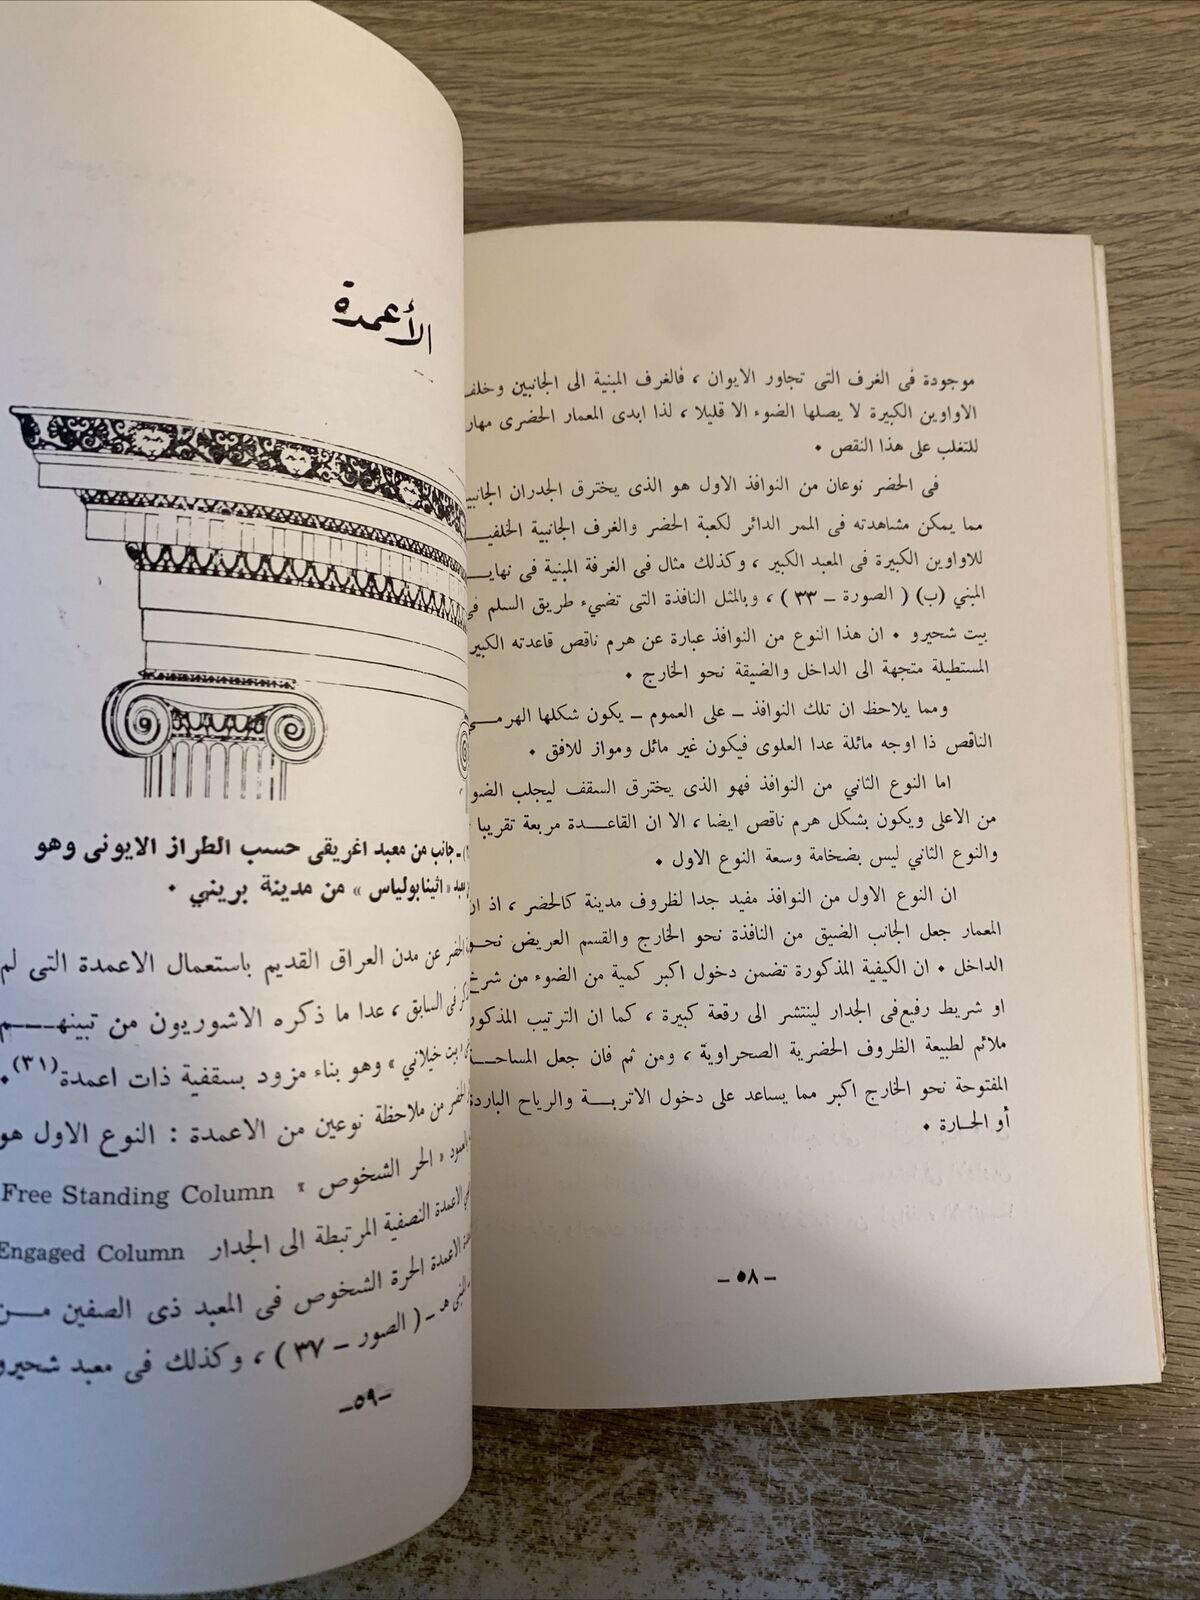 موجودة فى الغرف التى تجاور الايوان ، فالغرف المبنية الى الجانبين وخلف
الاواوين الكبيرة لا يصلها الضوء الا قليلا ، لذا ابدى المعمار الحضرى
للتغلب على هذا النقص ٠
فى الحضر نوعان من النوافذ الاول هو الذى يخترق الجدران
مما يمكن مشاهدته فى الممر الدائر لكعبة الحضر والغرف الجانبية
للاواوين الكبيرة فى المعبد الكبير ، وكذلك مثال فى الغرفة المبنية فى
المبني (ب) ( الصورة – ٣٣ ) ، وبالمثل النافذة التى تضيء طريق السلم فى
بيت شحيرو ٠ ان هذا النوع من النوافذ عبارة عن هرم ناقص قاعدته
المستطيلة متجهة الى الداخل والضيقة نحو الخارج ٠
ومما يلاحظ ان تلك النوافذ – على العموم – يكون شكلها
الناقص ذا اوجه مائلة عدا العلوى فيكون غير مائل ومواز للافق ٠
اما النوع الثاني من النوافذ فهو الذى يخترق السقف ليجلب
من الاعلى ويكون بشكل هرم ناقص ايضا ، الا ان القاعـــدة مربعة تقريبا
والنوع الثاني ليس بضخامة وسعة النوع الاول ٠
ان النوع الاول من النوافذ مفيد جدا لظروف مدينة كالحضر ، اذ ان
المعمار جعل الجانب الضيق من النافذة نحو الخارج والقسم العريض نحـو
الداخل ٠ ان الكيفية المذكورة تضمن دخول اكبر كمية من الضوء من
او شريط رفيع فى الجدار لينتشر الى رقعة كبيرة ، كما ان الترتيب
ملائم لطبيعة الظروف الحضرية الصحراوية ، ومن ثم فان جعل
المفتوحة نحو الخارج اكبر مما يساعد على دخول الاتربـــة والرياح
أو الحـارة ٠
– ٥٨ –
الأعمدة
جانب من معبد اغريقى حسب الطراز الايونى وهو
« اثينابولياس » من مدينة برينى ٠
عن مدن العراق القديم باستعمال الاعمدة التى لم
فى السابق ، عدا ما ذكره الاشوريون من تبينهـــم
بيت خيلاني » وهو بناء مزود بسقفية ذات اعمدة (٣١) ٠
من ملاحظة نوعين من الاعمدة : النوع الاول هو
« الحر الشخوص » Free Standing Column
الاعمدة النصفية المرتبطة الى الجدار Engaged Column
الاعمدة الحرة الشخوص فى المعبد ذى الصفين مــن
هـ – ( الصور – ٣٧ ) ، وكذلك فى معبد شحيرو
–٥٩–